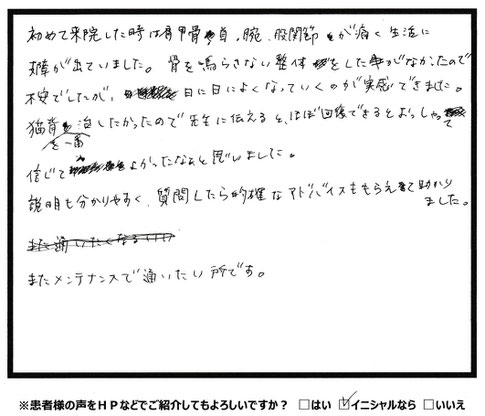 初めて来院した時は肩甲骨、首、腕、股関節が痛く生活に
支障が出ていました。骨を鳴らさない整体をした事がなかったので
不安でしたが、日に日によくなっていくのが実感できました。
猫背を一番治したかったので先生に伝えると、ほぼ回復できるとおっしゃって
信じてよかったなぁと思いました。
説明も分かりやすく、質問したら的確なアドバイスももらえて助かりました。
また通いたくなる
またメンテナンスで通いたい所です。
※患者様の声をHPなどでご紹介してもよろしいですか？ □はい ☑イニシャルなら □いいえ